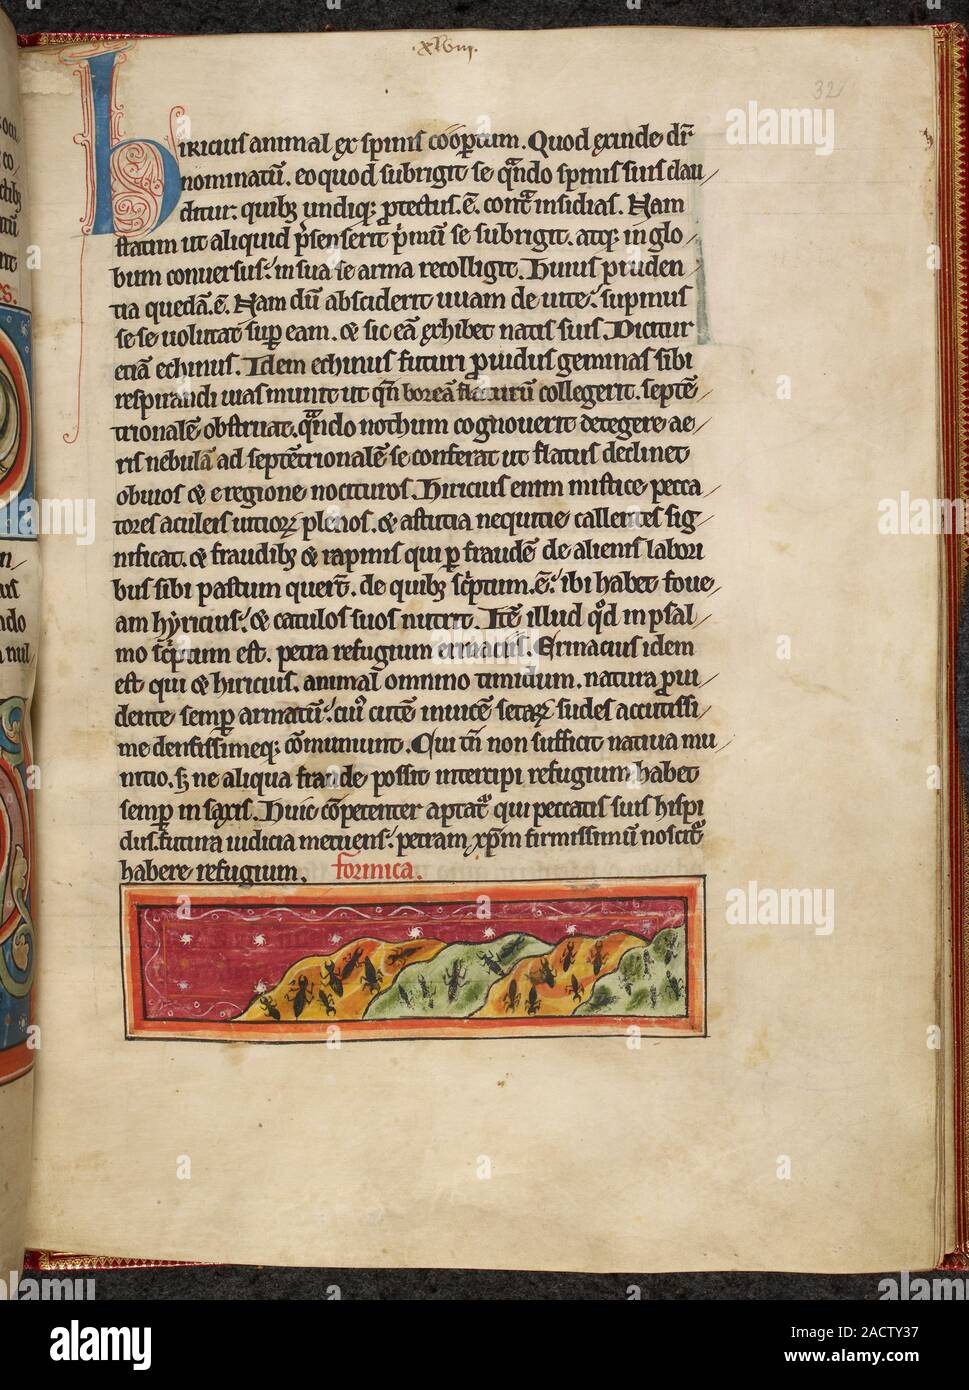 .xlviii.
32
hiricius animal ex spinis coop̄tum. Quod exinde dr̄
nominatū. eo quod subrigit se qn̄do spinis suis clau/
ditur: quibꝫ undiqꝫ ꝓtectus .ē. contͣ insidias. Nam
statim ut aliquid p̄senserit p̄mū se subrigit. atqꝫ in glo/
bum conuersus: in sua se arma recolligit. Huius pruden
tia quedā .ē. Nam dū absciderit uuam de uite: supinus
sese uolutat suꝑ eam. & sic eā exhibet natis suis. Dicitur
etiā echinus. Idem echinus futuri ꝓuidus geminas sibi
respirandi uias munit ut qn̄ boreā flaturū collegerit. septē/
trionalē obstruat. qͣndo nothum cognouerit detegere ae/
ris nebulā ad septētrionalē se conferat ut flatus declinet
obuios & e regione nocituros. Hiricius enim mistice pecca/
tores aculeis uitioꝝ plenos. & astutia nequitie callentes sig/
nificat. & fraudibꝫ & rapinis qui ꝑ fraudē de alienis labori
bus sibi pastum querūt. de quibꝫ sc̄ptum .ē: ibi habet foue/
am hyricius: & catulos suos nutrit. Itē illud qͦd in psal/
mo sc̄ptum est. petra refugium ermaciis. Ermacius idem
est qui & hiricius. animal omnino timidum. natura ꝓui/
dente semꝑ armatū: cuiꝰ cutē inuicē setaꝝ sudes acutissi/
me densissimeqꝫ cōmuniunt. Qui tn̄ non sufficit natiua mu/
nitio. sꝫ ne aliqua fraude possit intercipi refugium habet
semꝑ in saxis. Huic cōpetenter aptatͬ qui peccatis suis hispi
dus. futura iudicia metuens: petram xp̄m firmissimū noscitͬ
habere refugium. formica.
alamy
Image ID: 2ACTY37
www.alamy.com